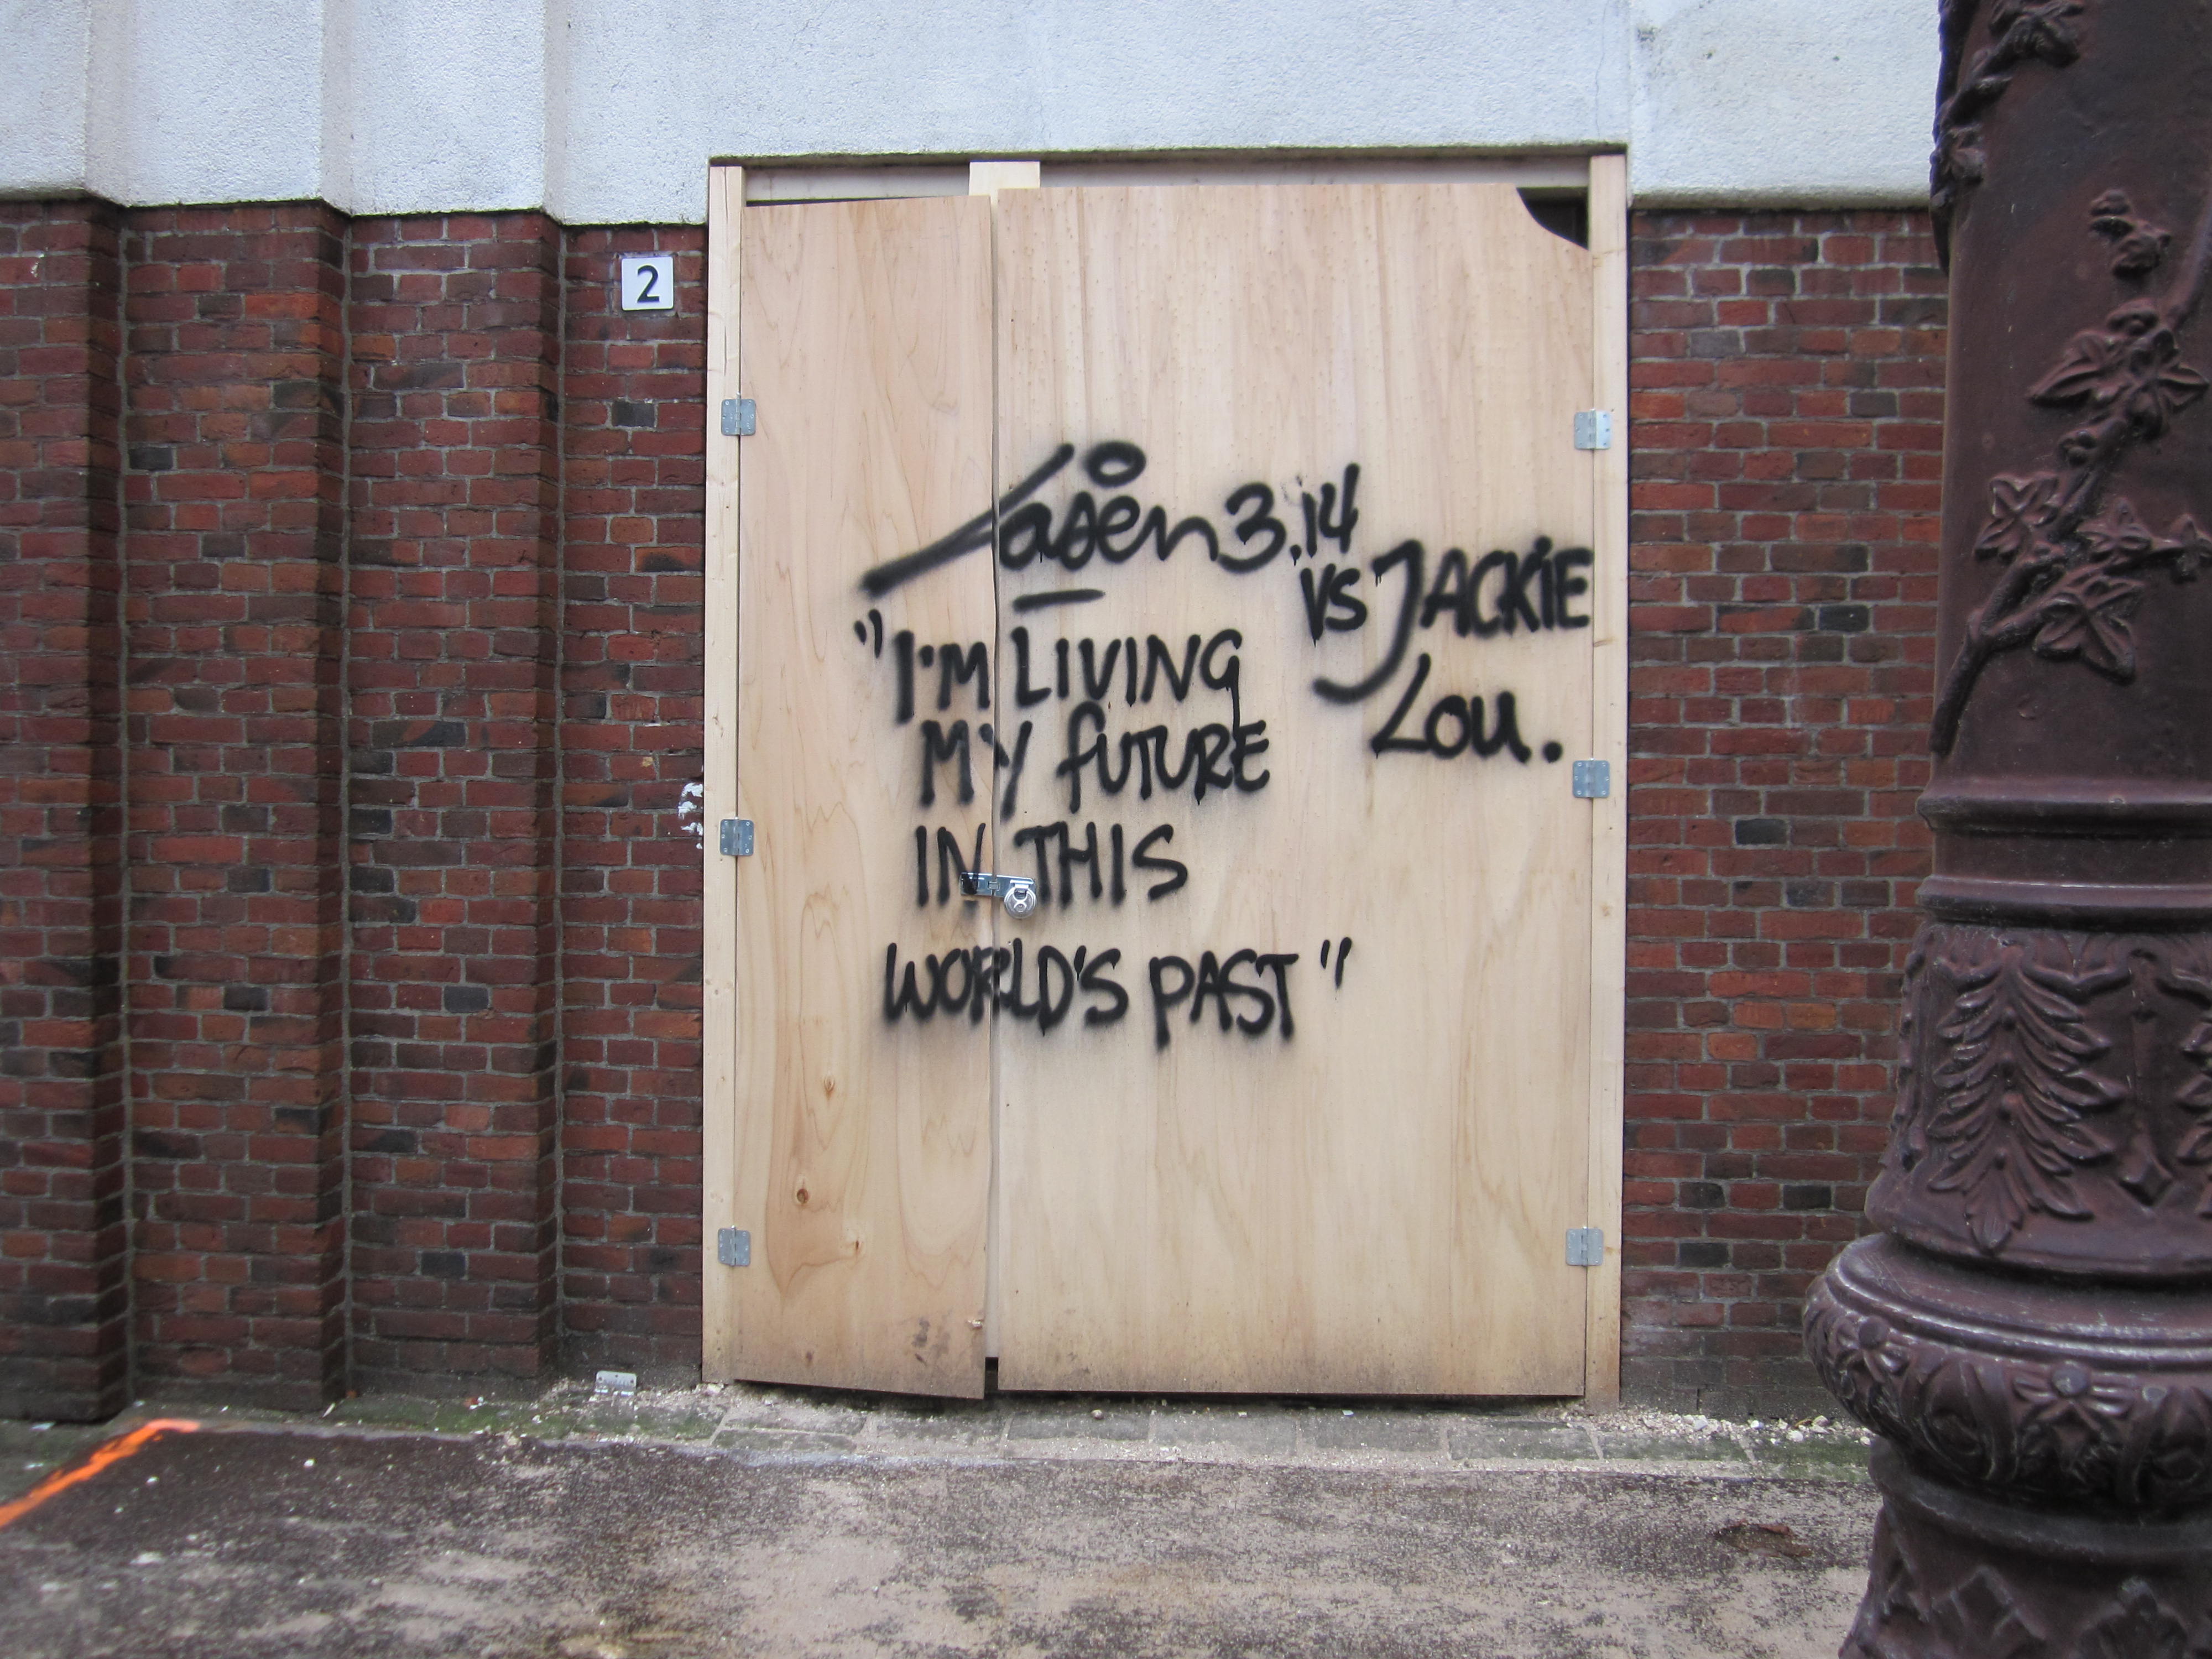 2
Laser 3.14
VS JACKiE
LOU.
"I'M LIVING
MY FUTURE
IN THIS
WORLD'S PAST"